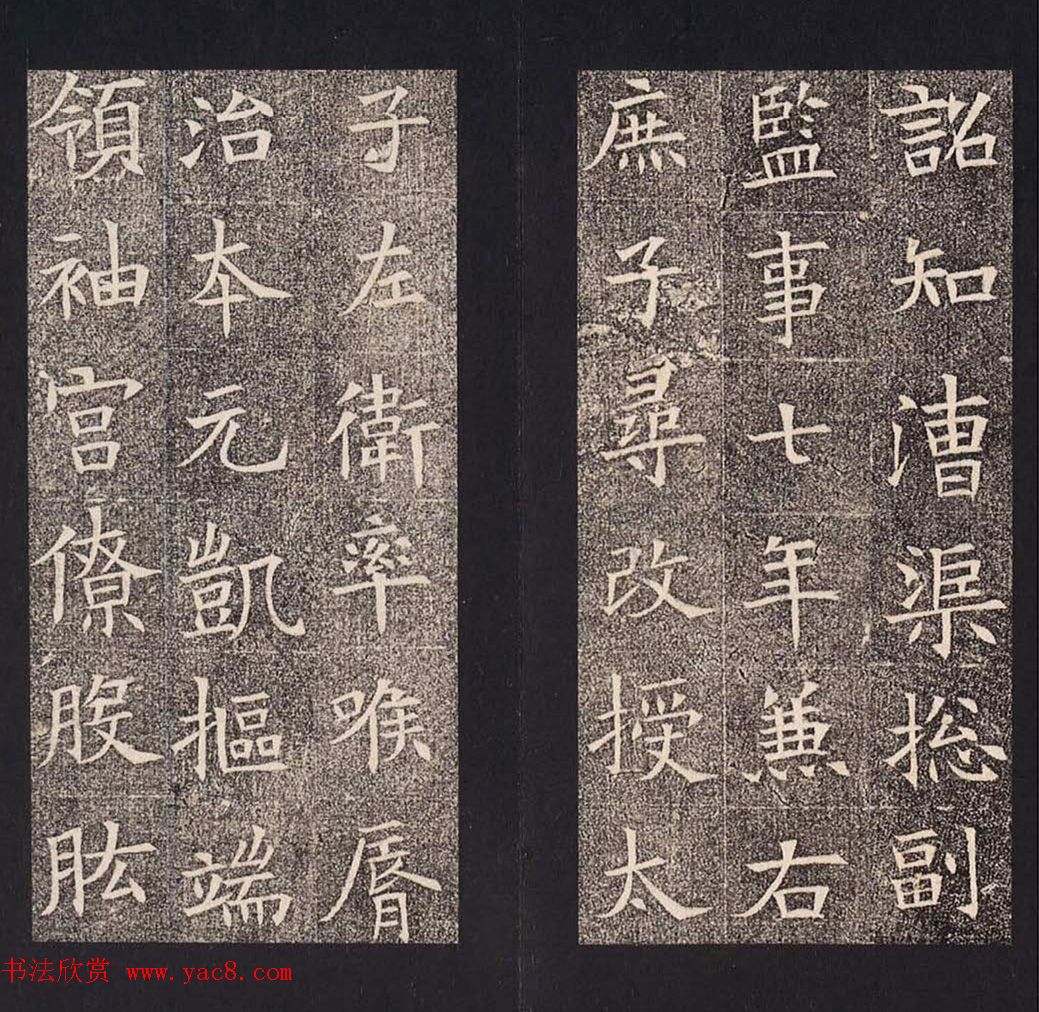 詔知漕渠摠副
監事七年兼右
庶子尋改授太
子左衛率喉脣
治本元凱摳端
領袖宮僚股肱
书法欣赏 www.yac8.com